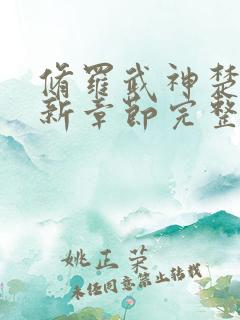 脩羅武神楚
新章節完整
姚正荣
未经同意禁止转载